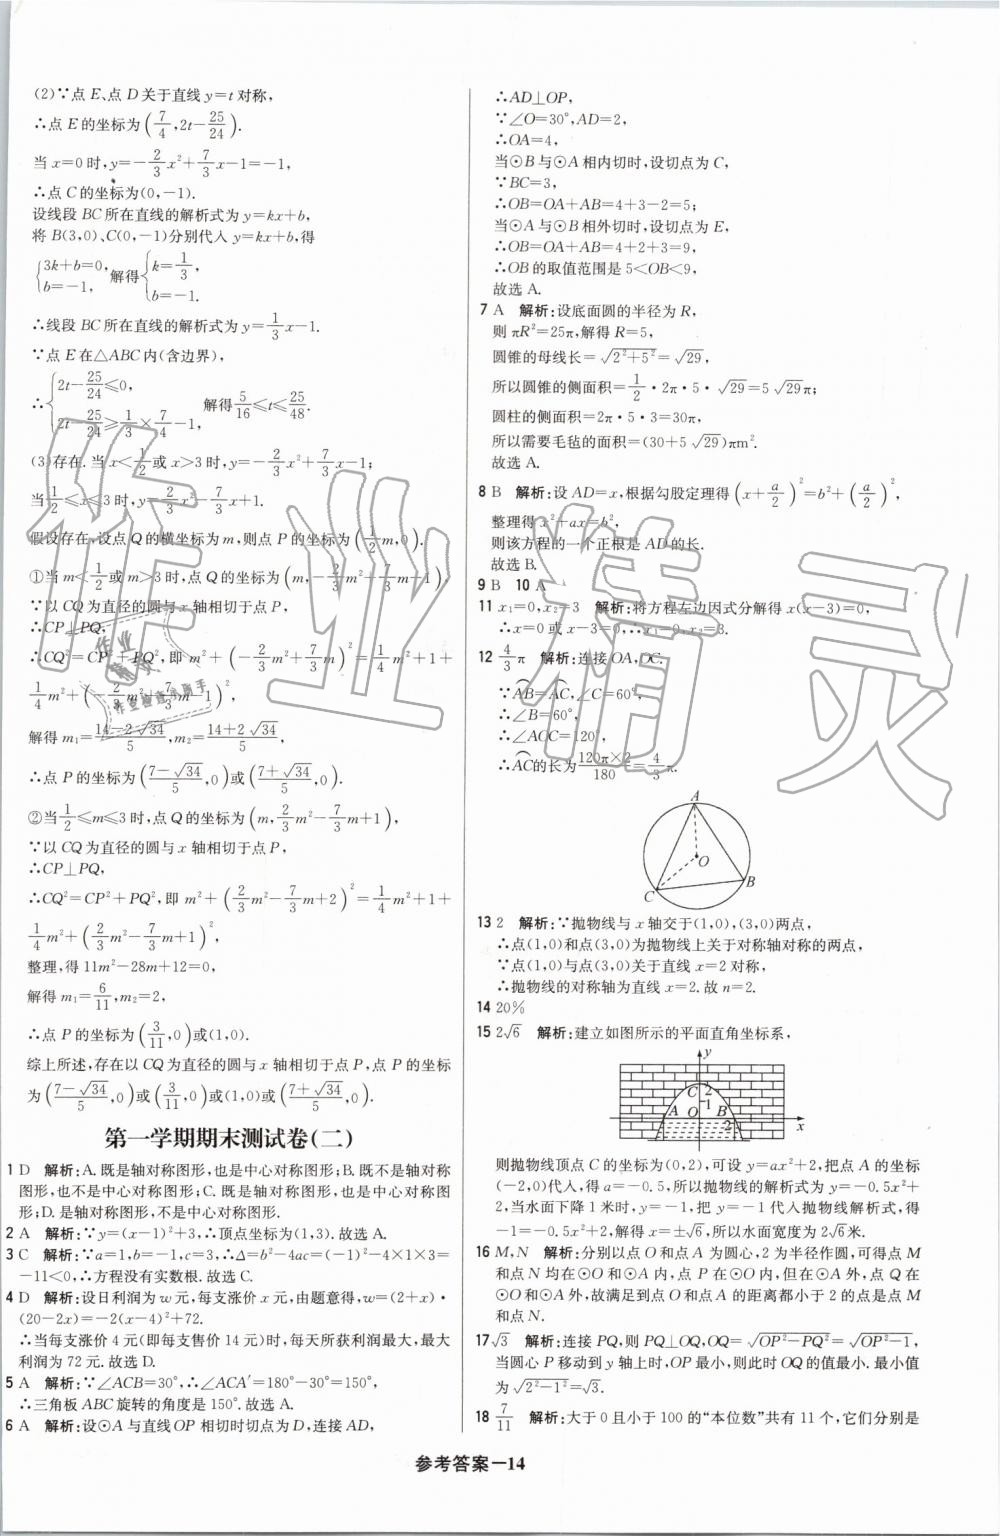 (2)∵点 E、点 D 关于直线 y=t 对称,
∴点 E 的坐标为(7/4, 2t-25/24).
当 x=0 时, y=-2/3x²+7/3x-1=-1,
∴点 C 的坐标为(0,-1).
设线段 BC 所在直线的解析式为 y=kx+b,
将 B(3,0)、C(0,-1)分别代入 y=kx+b,得
{3k+b=0, b=-1, 解得{k=1/3, b=-1.
∴线段 BC 所在直线的解析式为 y=1/3x-1.
∵点 E 在△ABC 内(含边界),
∴{2t-25/24≤0, 2t-25/24≥1/3×7/4-1, 解得5/16≤t≤25/48.
(3)存在. 当 x<1/2或 x>3 时, y=-2/3x²+7/3x-1;
当1/2≤x≤3 时, y=2/3x²-7/3x+1.
假设存在,设点 Q 的横坐标为 m,则点 P 的坐标为(1/2m,0).
①当 m<1/2或 m>3 时,点 Q 的坐标为(m,-2/3m²+7/3m-1).
∵以 CQ 为直径的圆与 x 轴相切于点 P,
∴CP⊥PQ,
∴CQ²=CP²+PQ²,即 m²+(-2/3m²+7/3m)²=1/4m²+1+
1/4m²+(-2/3m²+7/3m-1)²,
解得 m₁=(14-2√34)/5, m₂=(14+2√34)/5,
∴点 P 的坐标为((7-√34)/5,0)或((7+√34)/5,0).
②当1/2≤m≤3 时,点 Q 的坐标为(m,2/3m²-7/3m+1),
∵以 CQ 为直径的圆与 x 轴相切于点 P,
∴CP⊥PQ,
∴CQ²=CP²+PQ²,即 m²+(2/3m²-7/3m+2)²=1/4m²+1+
1/4m²+(2/3m²-7/3m+1)²,
整理,得 11m²-28m+12=0,
解得 m₁=6/11, m₂=2,
∴点 P 的坐标为(3/11,0)或(1,0).
综上所述,存在以 CQ 为直径的圆与 x 轴相切于点 P,点 P 的坐标
为((7-√34)/5,0)或(3/11,0)或(1,0)或((7+√34)/5,0).
第一学期期末测试卷(二)
1 D 解析:A. 既是轴对称图形,也是中心对称图形;B. 既不是轴对称
图形,也不是中心对称图形;C. 既是轴对称图形,也是中心对称图
形;D. 是轴对称图形,不是中心对称图形.
2 A 解析:∵y=(x-1)²+3,∴顶点坐标为(1,3). 故选 A.
3 C 解析:∵a=1,b=-1,c=3,∴Δ=b²-4ac=(-1)²-4×1×3=
-11<0,∴方程没有实数根. 故选 C.
4 D 解析:设日利润为 w 元,每支涨价 x 元,由题意得,w=(2+x)·
(20-2x)=-2(x-4)²+72.
∴当每支涨价 4 元(即每支售价 14 元)时,每天所获利润最大,最大
利润为 72 元. 故选 D.
5 A 解析:∵∠ACB=30°,∴∠ACA′=180°-30°=150°,
∴三角板 ABC 旋转的角度是 150°. 故选 A.
6 A 解析:设⊙A 与直线 OP 相切时切点为 D,连接 AD,
∴AD⊥OP,
∵∠O=30°,AD=2,
∴OA=4,
当⊙B 与⊙A 相内切时,设切点为 C,
∵BC=3,
∴OB=OA+AB=4+3-2=5;
当⊙A 与⊙B 相外切时,设切点为 E,
∴OB=OA+AB=4+2+3=9,
∴OB 的取值范围是 5<OB<9,
故选 A.
7 A 解析:设底面圆的半径为 R,
则 πR²=25π,解得 R=5,
圆锥的母线长=√(2²+5²)=√29,
所以圆锥的侧面积=1/2·2π·5·√29=5√29π;
圆柱的侧面积=2π·5·3=30π,
所以需要毛毡的面积=(30+5√29)πm².
故选 A.
8 B 解析:设 AD=x,根据勾股定理得(x+a/2)²=b²+(a/2)²,
整理得 x²+ax=b²,
则该方程的一个正根是 AD 的长.
故选 B.
9 B 10 A
11 x₁=0,x₂=3 解析:将方程左边因式分解得 x(x-3)=0,
∴x=0 或 x-3=0,∴x₁=0,x₂=3.
12 4/3π 解析:连接 OA,OC.
∵AB=AC,∠C=60°,
∴∠B=60°,
∴∠AOC=120°,
∴AC的长为120π×2/180=4/3π.
A
O
C
B
13 2 解析:∵抛物线与 x 轴交于(1,0),(3,0)两点,
∴点(1,0)和点(3,0)为抛物线上关于对称轴对称的两点,
∵点(1,0)与点(3,0)关于直线 x=2 对称,
∴抛物线的对称轴为直线 x=2. 故 n=2.
14 20%
15 2√6 解析:建立如图所示的平面直角坐标系,
y
C 2
1
A O B
2
x
则抛物线顶点 C 的坐标为(0,2),可设 y=ax²+2,把点 A 的坐标
(-2,0)代入,得 a=-0.5,所以抛物线的解析式为 y=-0.5x²+
2,当水面下降 1 米时,y=-1,把 y=-1 代入抛物线解析式,得
-1=-0.5x²+2,解得 x=±√6,所以水面宽度为 2√6米.
16 M,N 解析:分别以点 O 和点 A 为圆心,2 为半径作圆,可得点 M
和点 N 均在⊙O 和⊙A 内,点 P 在⊙O 内,但在⊙A 外,点 Q 在
⊙O 和⊙A 外,故满足到点 O 和点 A 的距离都小于 2 的点是点 M
和点 N.
17 √3 解析:连接 PQ,则 PQ⊥OQ,OQ=√(OP²-PQ²)=√(OP²-1),
当圆心 P 移动到 y 轴上时,OP 最小,则此时 OQ 的值最小. 最小值
为√(2²-1²)=√3.
18 7/11 解析:大于 0 且小于 100 的“本位数”共有 11 个,它们分别是
参考答案-14
作业精灵